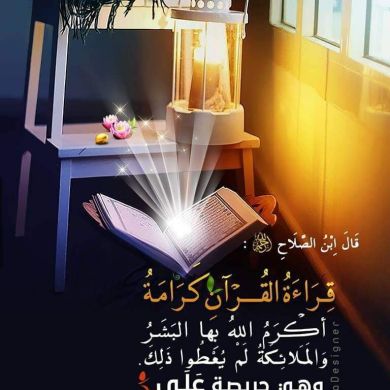 قَالَ اِبْنُ الصَّلَاحِ رحمه الله :
قِرَاءَةُ القُـرْآنِ كَرَامَةُ
أكْـرَمُ اللهُ بِها البَشَرُ
وَالمَلائِكَةُ لَمْ يُعْطُوا ذَلِكَ.
وَهِيَ حَرِيصَةٌ عَلَى
Designer